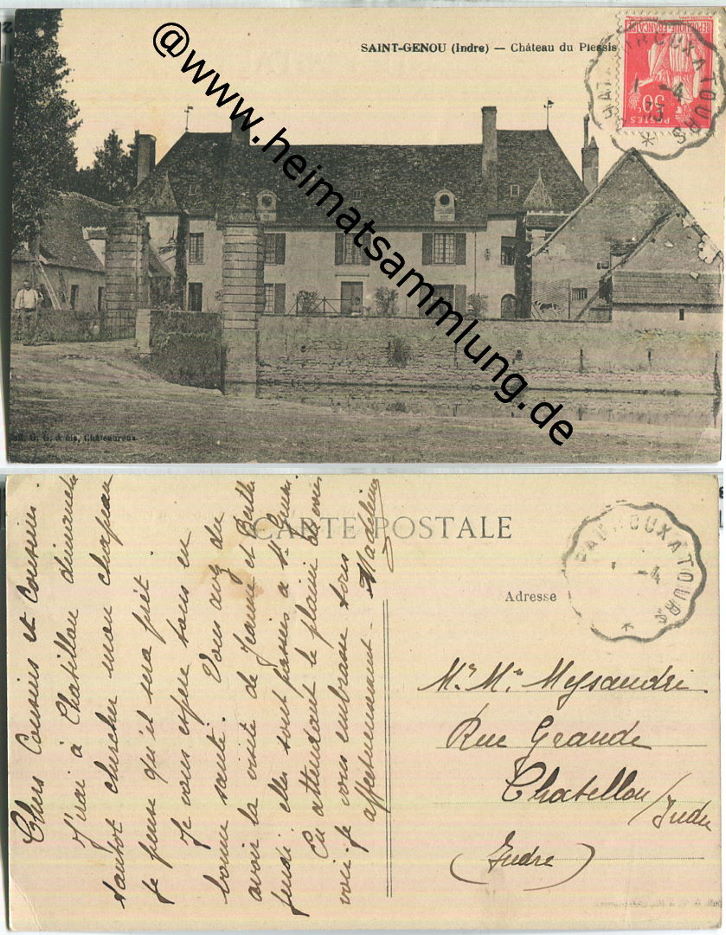 SAINT-GENOU (Indre) — Château du Plessis
PALHOUX A TOURS
1 -4
POSTES
50c
www.heimatsammlung.de
& fils, Châteauroux
CARTE POSTALE
A TOURS
-4
Adresse
Chers Cousins et Cousine
J'irai à Chatillon dimanche
tantot chercher mon chapeau
je pense qu'il sera prêt.
Je vous espère tous en
bonne santé. Vous avez du
avoir la visite de Jeanne et Berthe
jeudi elles sont passées à St Genou
En attendant le plaisir de vous
voir je vous embrasse tous
affectueusement. Madeleine
Mr Me Meysandri
Rue Grande
Chatillon/Indre
(Indre)